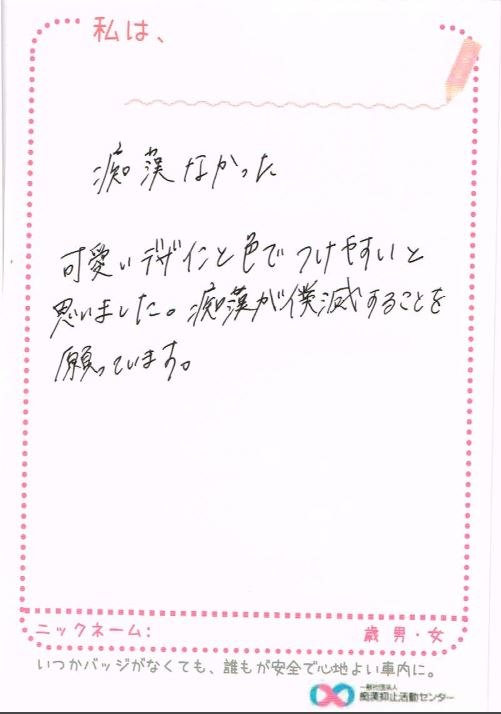 私は、
痴漢なかった
可愛いデザインと色でつけやすいと
思いました。痴漢が僕滅することを
願っています。
ニックネーム:
歳 男・女
いつかバッジがなくても、誰もが安全で心地よい車内に。
一般社団法人
痴漢抑止活動センター